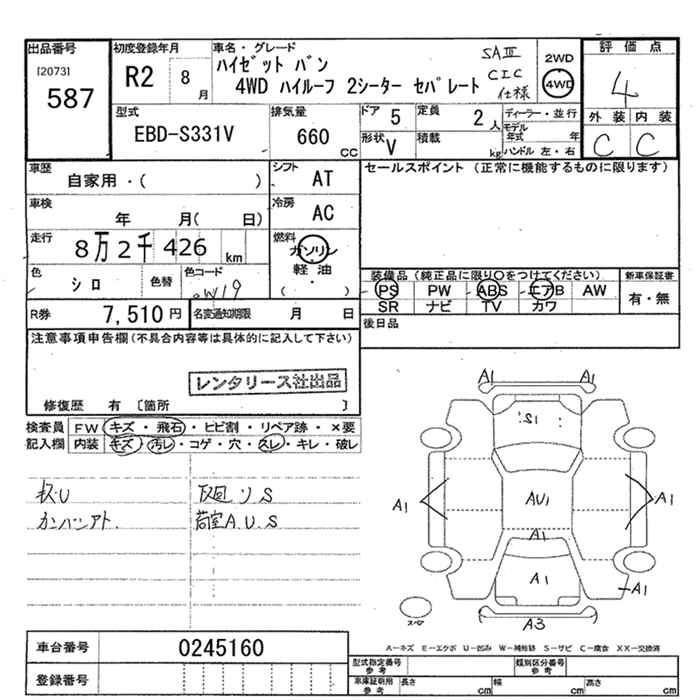 出品番号 初度登録年月 車名・グレード 評価点
[2073] 587
R2 8月
ハイゼット バン SAⅢ 2WD
4WD ハイルーフ 2シーター セパレート CIC仕様 4WD
4
型式 排気量 ドア 5 定員 2人 ディーラー・並行 外装 内装
EBD-S331V 660cc 形状 V 積載 kg モデル年式 年 ハンドル 左・右 C C
車歴 シフト セールスポイント (正常に機能するものに限ります)
自家用・( ) AT
車検 冷房
年 月( 日) AC
走行 燃料
8万2千426km ガソリン・軽油
( )
色 シロ 色替 色コード W19
装備品(純正品に限り○をつけてください) 新車保証書
PS PW ABS エアB AW 有・無
SR ナビ TV カワ
R券 7,510円 名変通知期限 月 日
後日品
注意事項申告欄(不具合内容等は具体的に記入して下さい)
レンタリース社出品
修復歴 有 [箇所 ]
検査員 FW キズ・飛石・ヒビ割・リペア跡・×要
記入欄 内装 キズ・汚レ・コゲ・穴・スレ・キレ・破レ
カンバンアト.
荷室A.U.S
A1 A1
A1 AU1 A1
A1
A1 A1
A3
スペア
A-キズ E-エクボ U-凹み W-補修跡 S-サビ C-腐食 XX-交換済
車台番号 0245160
登録番号
型式指定番号 参考 類別区分番号 参考
車庫証明用 参考 長さ cm 幅 cm 高さ cm